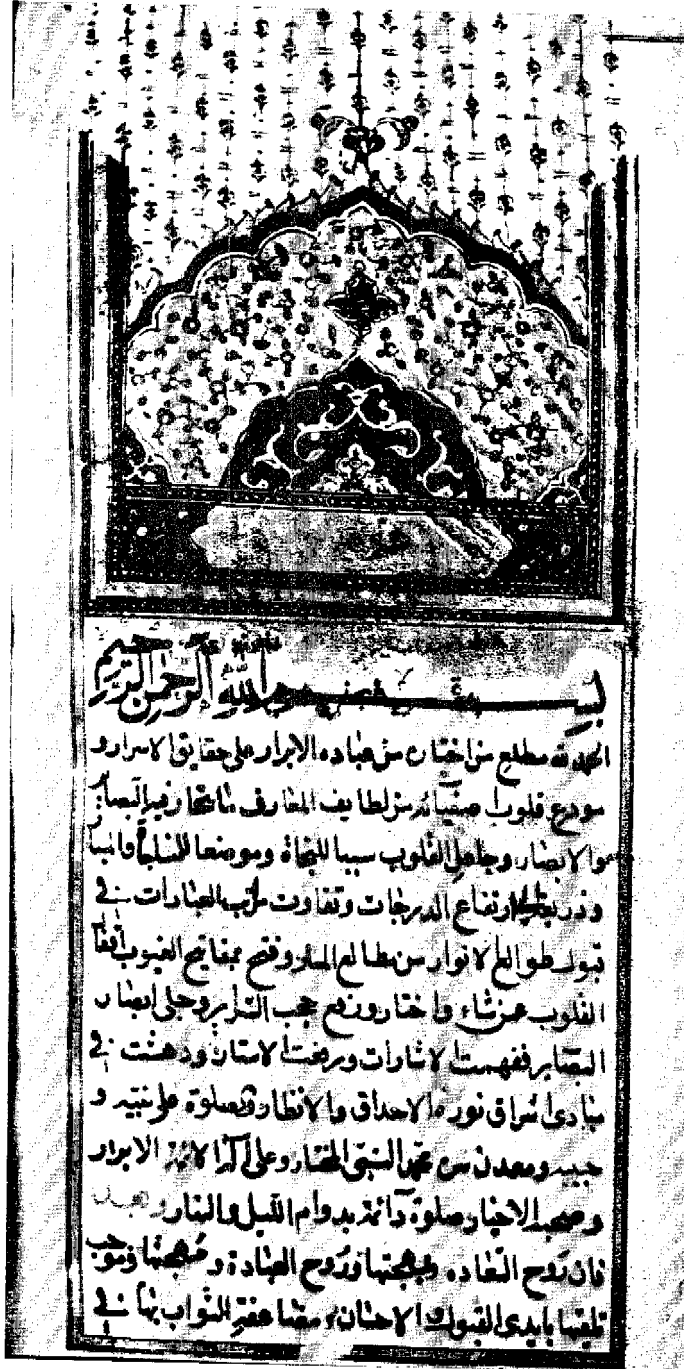 بسم الله الرحمن الرحيم
الحمد لله مطلع من اختار من عباده الابرار على حقايق الاسرار و
مودع قلوب اصفيائه من لطايف المعارف ما تحار فيه البصائر
والابصار وجاعل القلوب سببا للنجاة وموضعا للمناجاة
لارتفاع الدرجات وتفاوت مراتب العبادات في
قبول طوالع الانوار من مطالع وفتح بمفاتيح الغيوب اقفال
القلوب عمن شاء واختار ورفع حجب السراير وجلى ابصار
البصاير ففهمت الاشارات ورفعت الاستار ودهشت في
مبادى اشراق نوره الاحداق والانظار والصلوة على نبيه و
حبيبه ومعدن سره محمد النبي المختار وعلى آله الائمة الابرار
وصحبه الاخيار صلوة دائمة بدوام الليل والنهار وبعد
فان روح العباده وبهجتها وروح العبادة ومهجتها وموجب
تلقيها بايدى القبول والاحسان ومضاعفة الثواب بها في